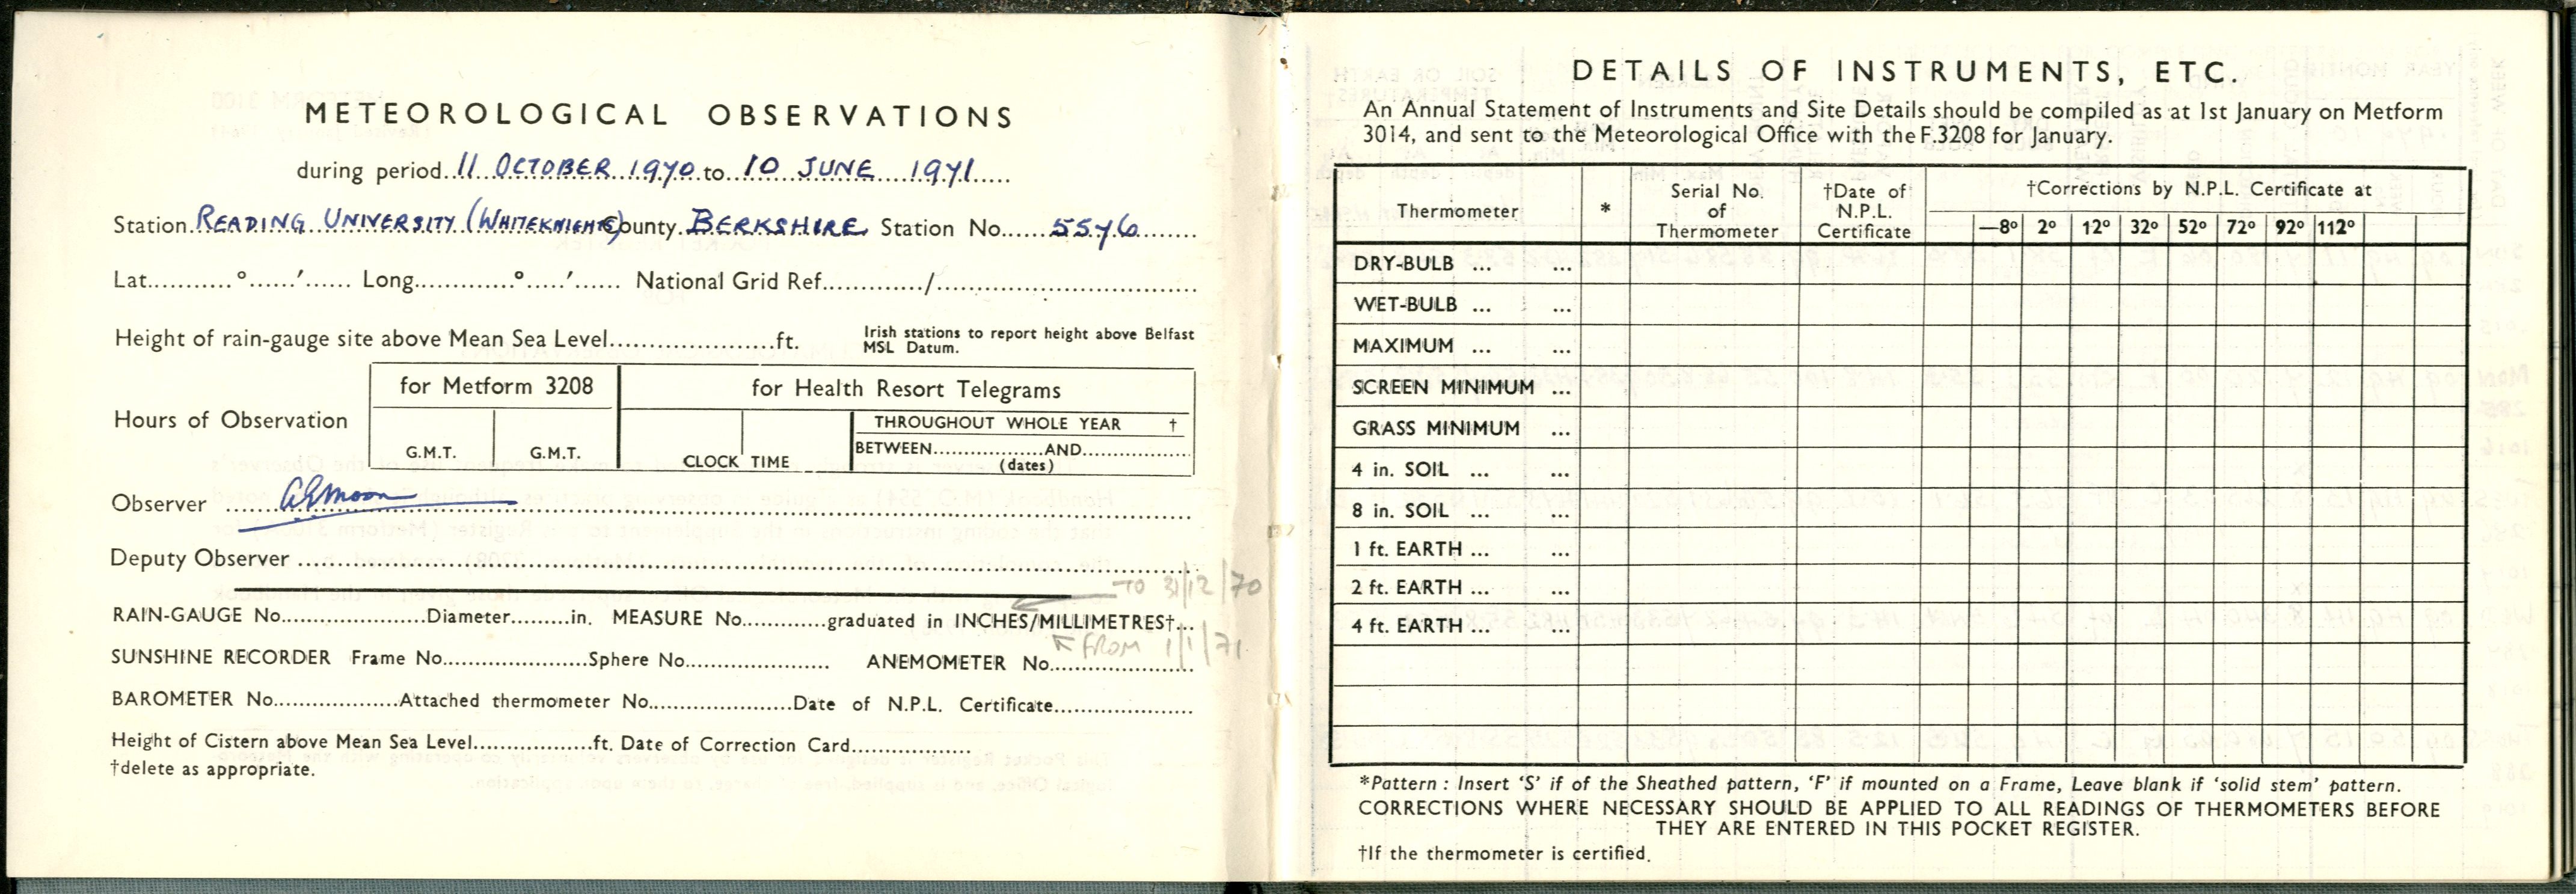 METEOROLOGICAL OBSERVATIONS
during period 11 OCTOBER 1970 to 10 JUNE 1971
Station READING UNIVERSITY (WHITEKNIGHTS) County BERKSHIRE Station No. 5576
Lat..........°......′...... Long..........°......′...... National Grid Ref........../..........
Height of rain-gauge site above Mean Sea Level....................ft. Irish stations to report height above Belfast
MSL Datum.
for Metform 3208 for Health Resort Telegrams
Hours of Observation
THROUGHOUT WHOLE YEAR †
G.M.T. G.M.T. CLOCK TIME BETWEEN..........AND..........
(dates)
Observer A E Moon
Deputy Observer
TO 31/12/70
RAIN-GAUGE No..........Diameter.........in. MEASURE No..........graduated in INCHES/MILLIMETRES†...
FROM 1/1/71
SUNSHINE RECORDER Frame No..........Sphere No.......... ANEMOMETER No..........
BAROMETER No..........Attached thermometer No..........Date of N.P.L. Certificate..........
Height of Cistern above Mean Sea Level..........ft. Date of Correction Card..........
†delete as appropriate.
DETAILS OF INSTRUMENTS, ETC.
An Annual Statement of Instruments and Site Details should be compiled as at 1st January on Metform
3014, and sent to the Meteorological Office with the F.3208 for January.
Thermometer * Serial No. of Thermometer †Date of N.P.L. Certificate †Corrections by N.P.L. Certificate at
—8° 2° 12° 32° 52° 72° 92° 112°
DRY-BULB ... ...
WET-BULB ... ...
MAXIMUM ... ...
SCREEN MINIMUM ...
GRASS MINIMUM ...
4 in. SOIL ... ...
8 in. SOIL ... ...
1 ft. EARTH ... ...
2 ft. EARTH ... ...
4 ft. EARTH ... ...
*Pattern : Insert ‘S’ if of the Sheathed pattern, ‘F’ if mounted on a Frame, Leave blank if ‘solid stem’ pattern.
CORRECTIONS WHERE NECESSARY SHOULD BE APPLIED TO ALL READINGS OF THERMOMETERS BEFORE
THEY ARE ENTERED IN THIS POCKET REGISTER.
†If the thermometer is certified.